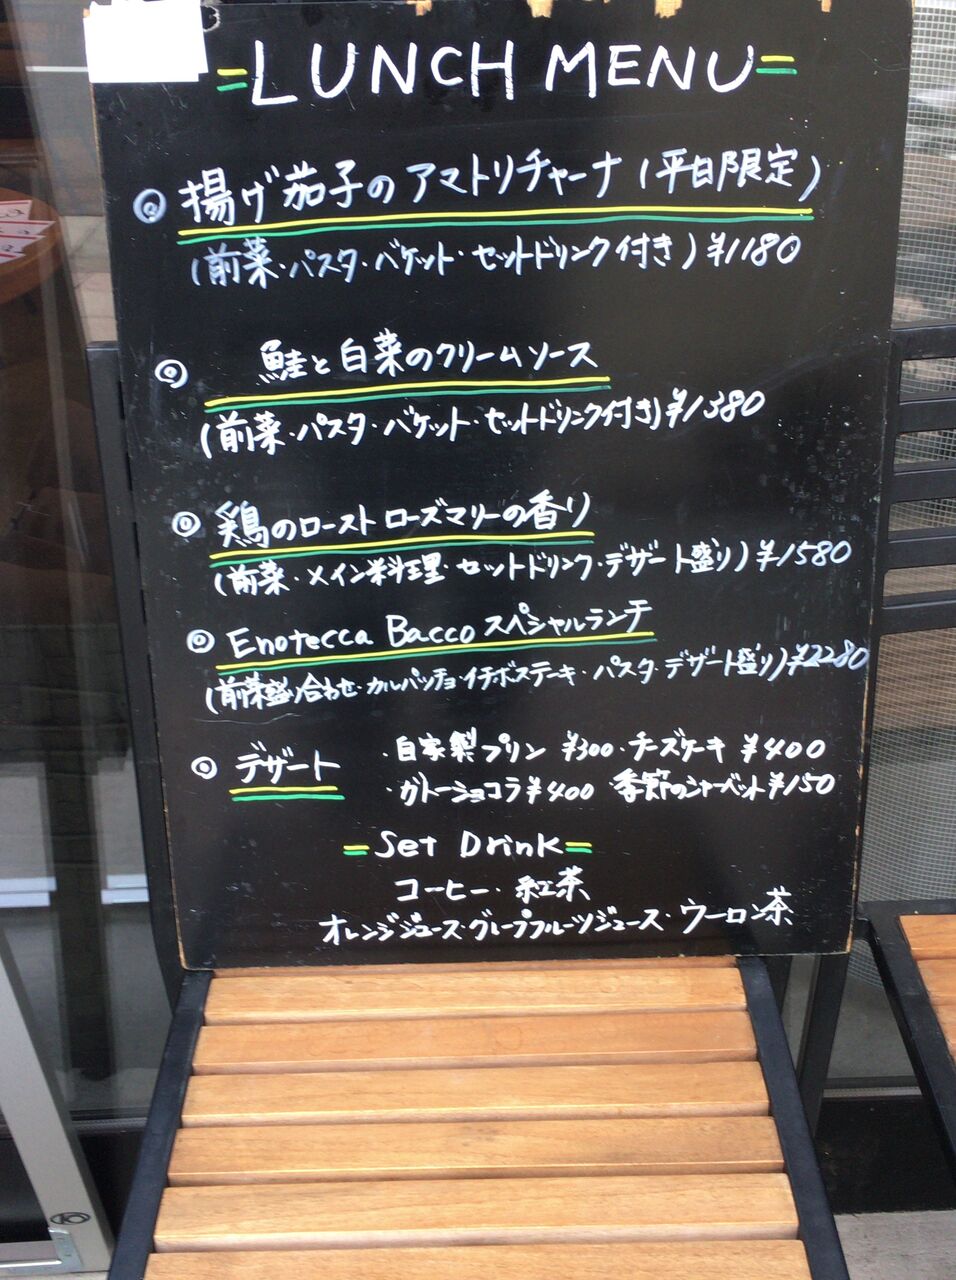 LUNCH MENU
◎ 揚げ茄子のアマトリチャーナ (平日限定)
(前菜・パスタ・バケット・セットドリンク付き) ¥1180
◎ 鮭と白菜のクリームソース
(前菜・パスタ・バケット・セットドリンク付き) ¥1380
◎ 鶏のロースト ローズマリーの香り
(前菜・メイン料理・セットドリンク・デザート盛り) ¥1580
◎ Enotecca Bacco スペシャルランチ
(前菜盛り合わせ・カルパッチョ・イチボステーキ・パスタ・デザート盛り) ¥2280
◎ デザート ・自家製プリン ¥300・チーズケーキ ¥400
・ガトーショコラ ¥400 季節のシャーベット ¥150
Set Drink
コーヒー・紅茶
オレンジジュース・グレープフルーツジュース・ウーロン茶